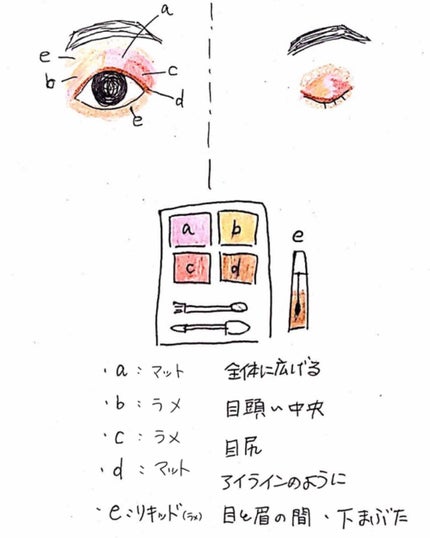 a
e
b
c
d
e
a b
c d
e
・a：マット 全体に広げる
・b：ラメ 目頭〜中央
・c：ラメ 目尻
・d：マット アイラインのように
・e：リキッド(ラメ) 目と眉の間・下まぶた